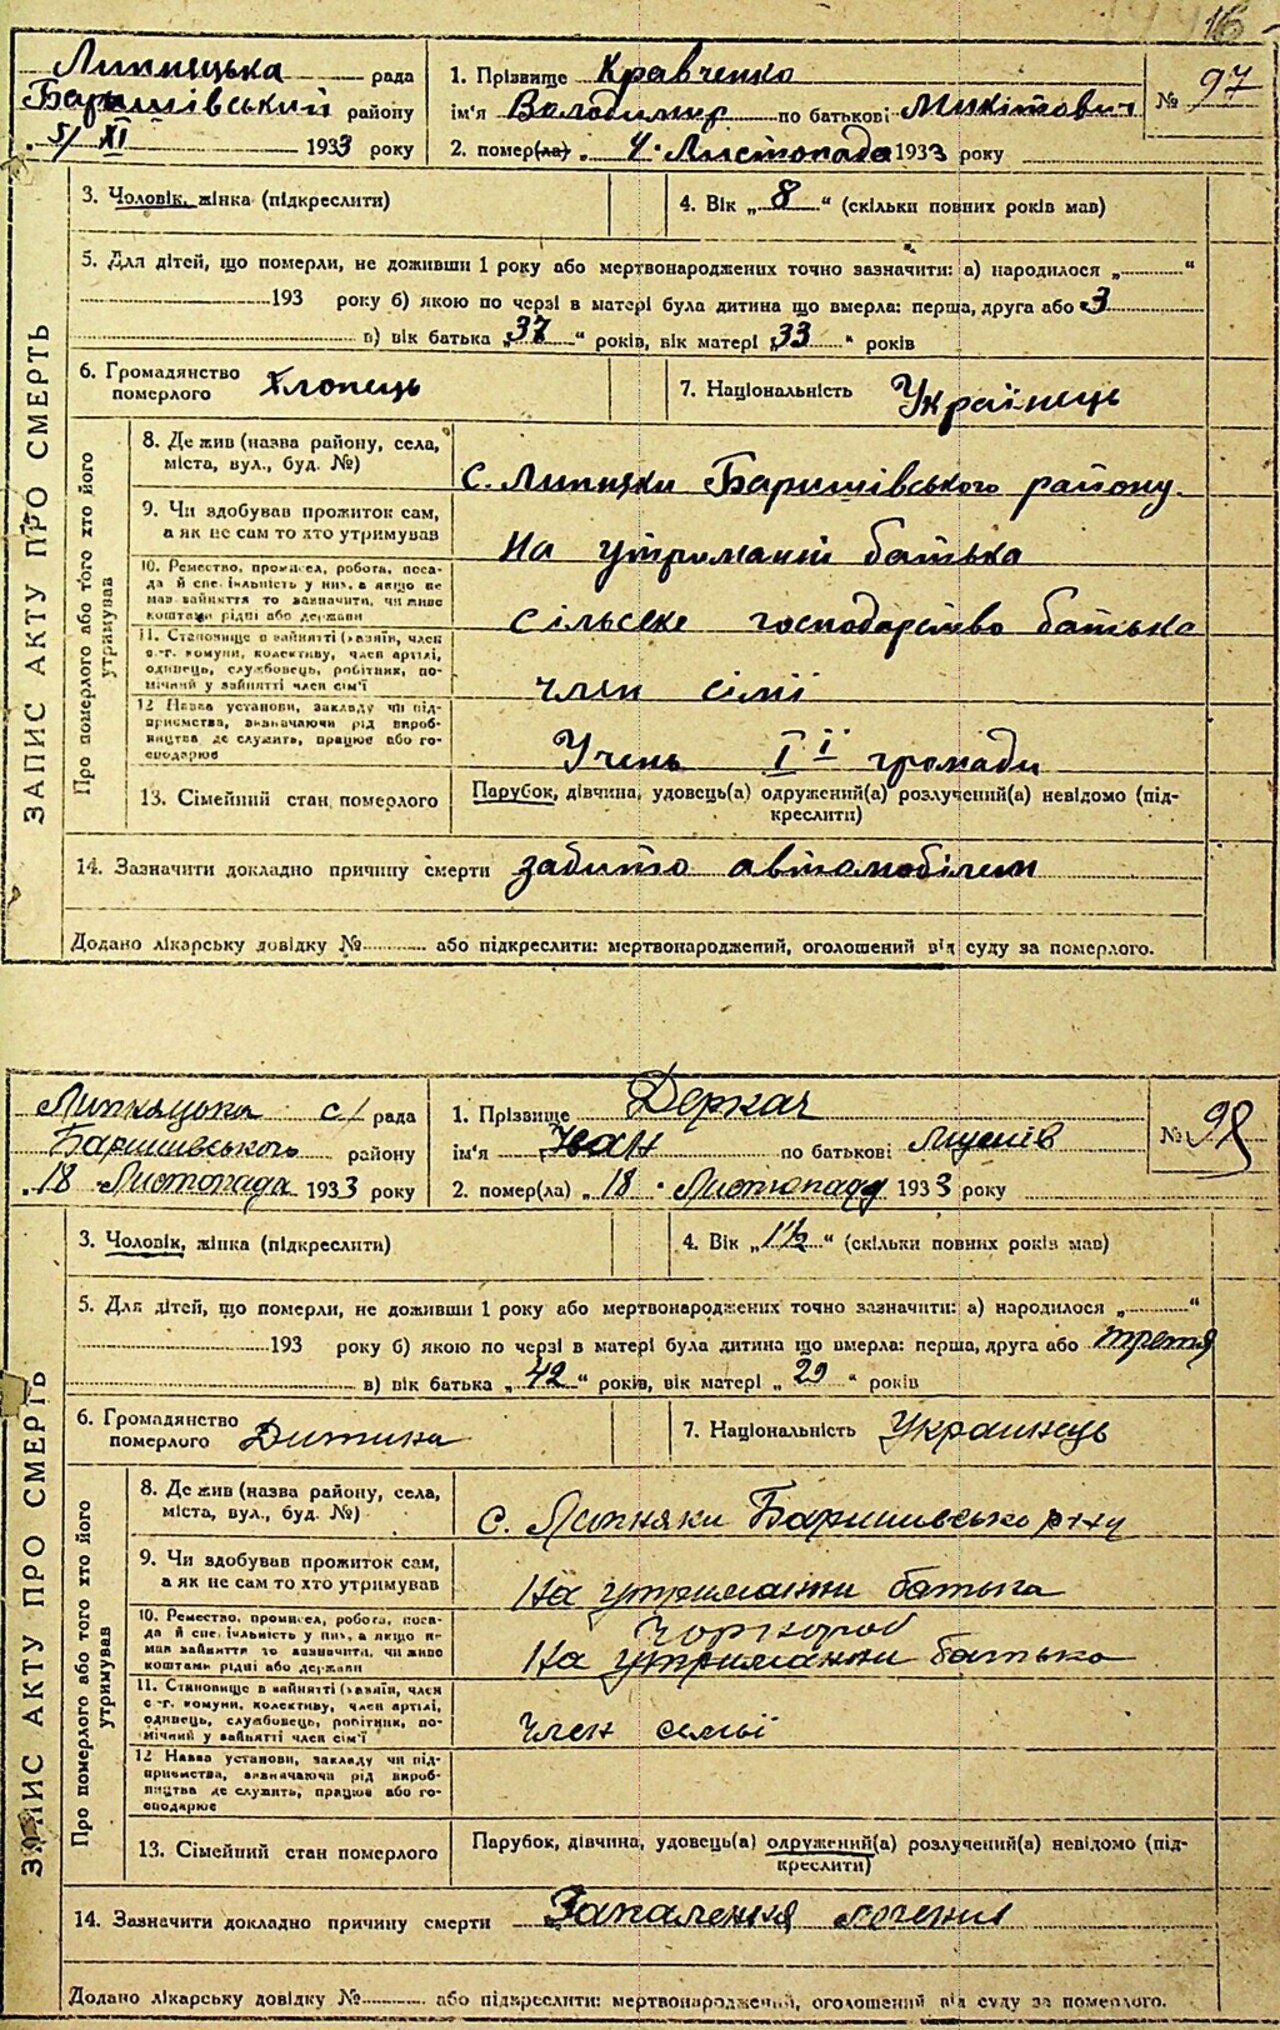 16
Липняцька рада
Баришівський району
5/XI 1933 року
1. Прізвище Кравченко
ім'я Володимир по батькові Микітович
2. помер(ла) „ 4 " Листопада 1933 року
№ 97
3. Чоловік, жінка (підкреслити)
4. Вік „ 8 “ (скільки повних років мав)
5. Для дітей, що померли, не доживши 1 року або мертвонароджених точно зазначити: а) народилося „ “
193 року б) якою по черзі в матері була дитина що вмерла: перша, друга або 3
в) вік батька „ 37 “ років, вік матері „ 33 “ років
6. Громадянство померлого Хлопець
7. Національність Українець
ЗАПИС АКТУ ПРО СМЕРТЬ
Про померлого або того хто його утримував
8. Де жив (назва району, села, міста, вул., буд. №)
с. Липняки Баришівського району.
9. Чи здобував прожиток сам, а як не сам то хто утримував
на утриманні батька
10. Ремество, промисел, робота, посада й спеціяльність у них, а якщо не мав зайняття то зазначити, чи живе коштами рідні або держави
сільське господарство батька
11. Становище в зайнятті (хазяїн, член с.-г. комуни, колективу, член артілі, одинець, службовець, робітник, помічний у зайнятті член сім'ї
член сімї
12 Назва установи, закладу чи підприємства, визначаючи рід виробництва де служить, працює або господарює
Учень Iї громади
13. Сімейний стан померлого
Парубок, дівчина, удовець(а) одружений(а) розлучений(а) невідомо (підкреслити)
14. Зазначити докладно причину смерти забито автомобілем
Додано лікарську довідку № або підкреслити: мертвонароджений, оголошений від суду за померлого.
Липняцька с/ рада
Баришивського району
„ 18 " Листопада 1933 року
1. Прізвище Деркач
ім'я Іван по батькові
2. помер(ла) „ 18 " Листопаду 1933 року
№ 98
3. Чоловік, жінка (підкреслити)
4. Вік „ 1½ “ (скільки повних років мав)
5. Для дітей, що померли, не доживши 1 року або мертвонароджених точно зазначити: а) народилося „ “
193 року б) якою по черзі в матері була дитина що вмерла: перша, друга або третя
в) вік батька „ 42 “ років, вік матері „ 29 “ років
6. Громадянство померлого Дитина
7. Національність Украинець
ЗАПИС АКТУ ПРО СМЕРТЬ
Про померлого або того хто його утримував
8. Де жив (назва району, села, міста, вул., буд. №)
с. Липняки Баришивсько р-ну
9. Чи здобував прожиток сам, а як не сам то хто утримував
На утриманни батька
10. Ремество, промисел, робота, посада й спеціяльність у них, а якщо не мав зайняття то зазначити, чи живе коштами рідні або держави
На утриманни батька
11. Становище в зайнятті (хазяїн, член с.-г. комуни, колективу, член артілі, одинець, службовець, робітник, помічний у зайнятті член сім'ї
член семьї
12 Назва установи, закладу чи підприємства, визначаючи рід виробництва де служить, працює або господарює
13. Сімейний стан померлого
Парубок, дівчина, удовець(а) одружений(а) розлучений(а) невідомо (підкреслити)
14. Зазначити докладно причину смерти Запалення легения
Додано лікарську довідку № або підкреслити: мертвонароджений, оголошений від суду за померлого.